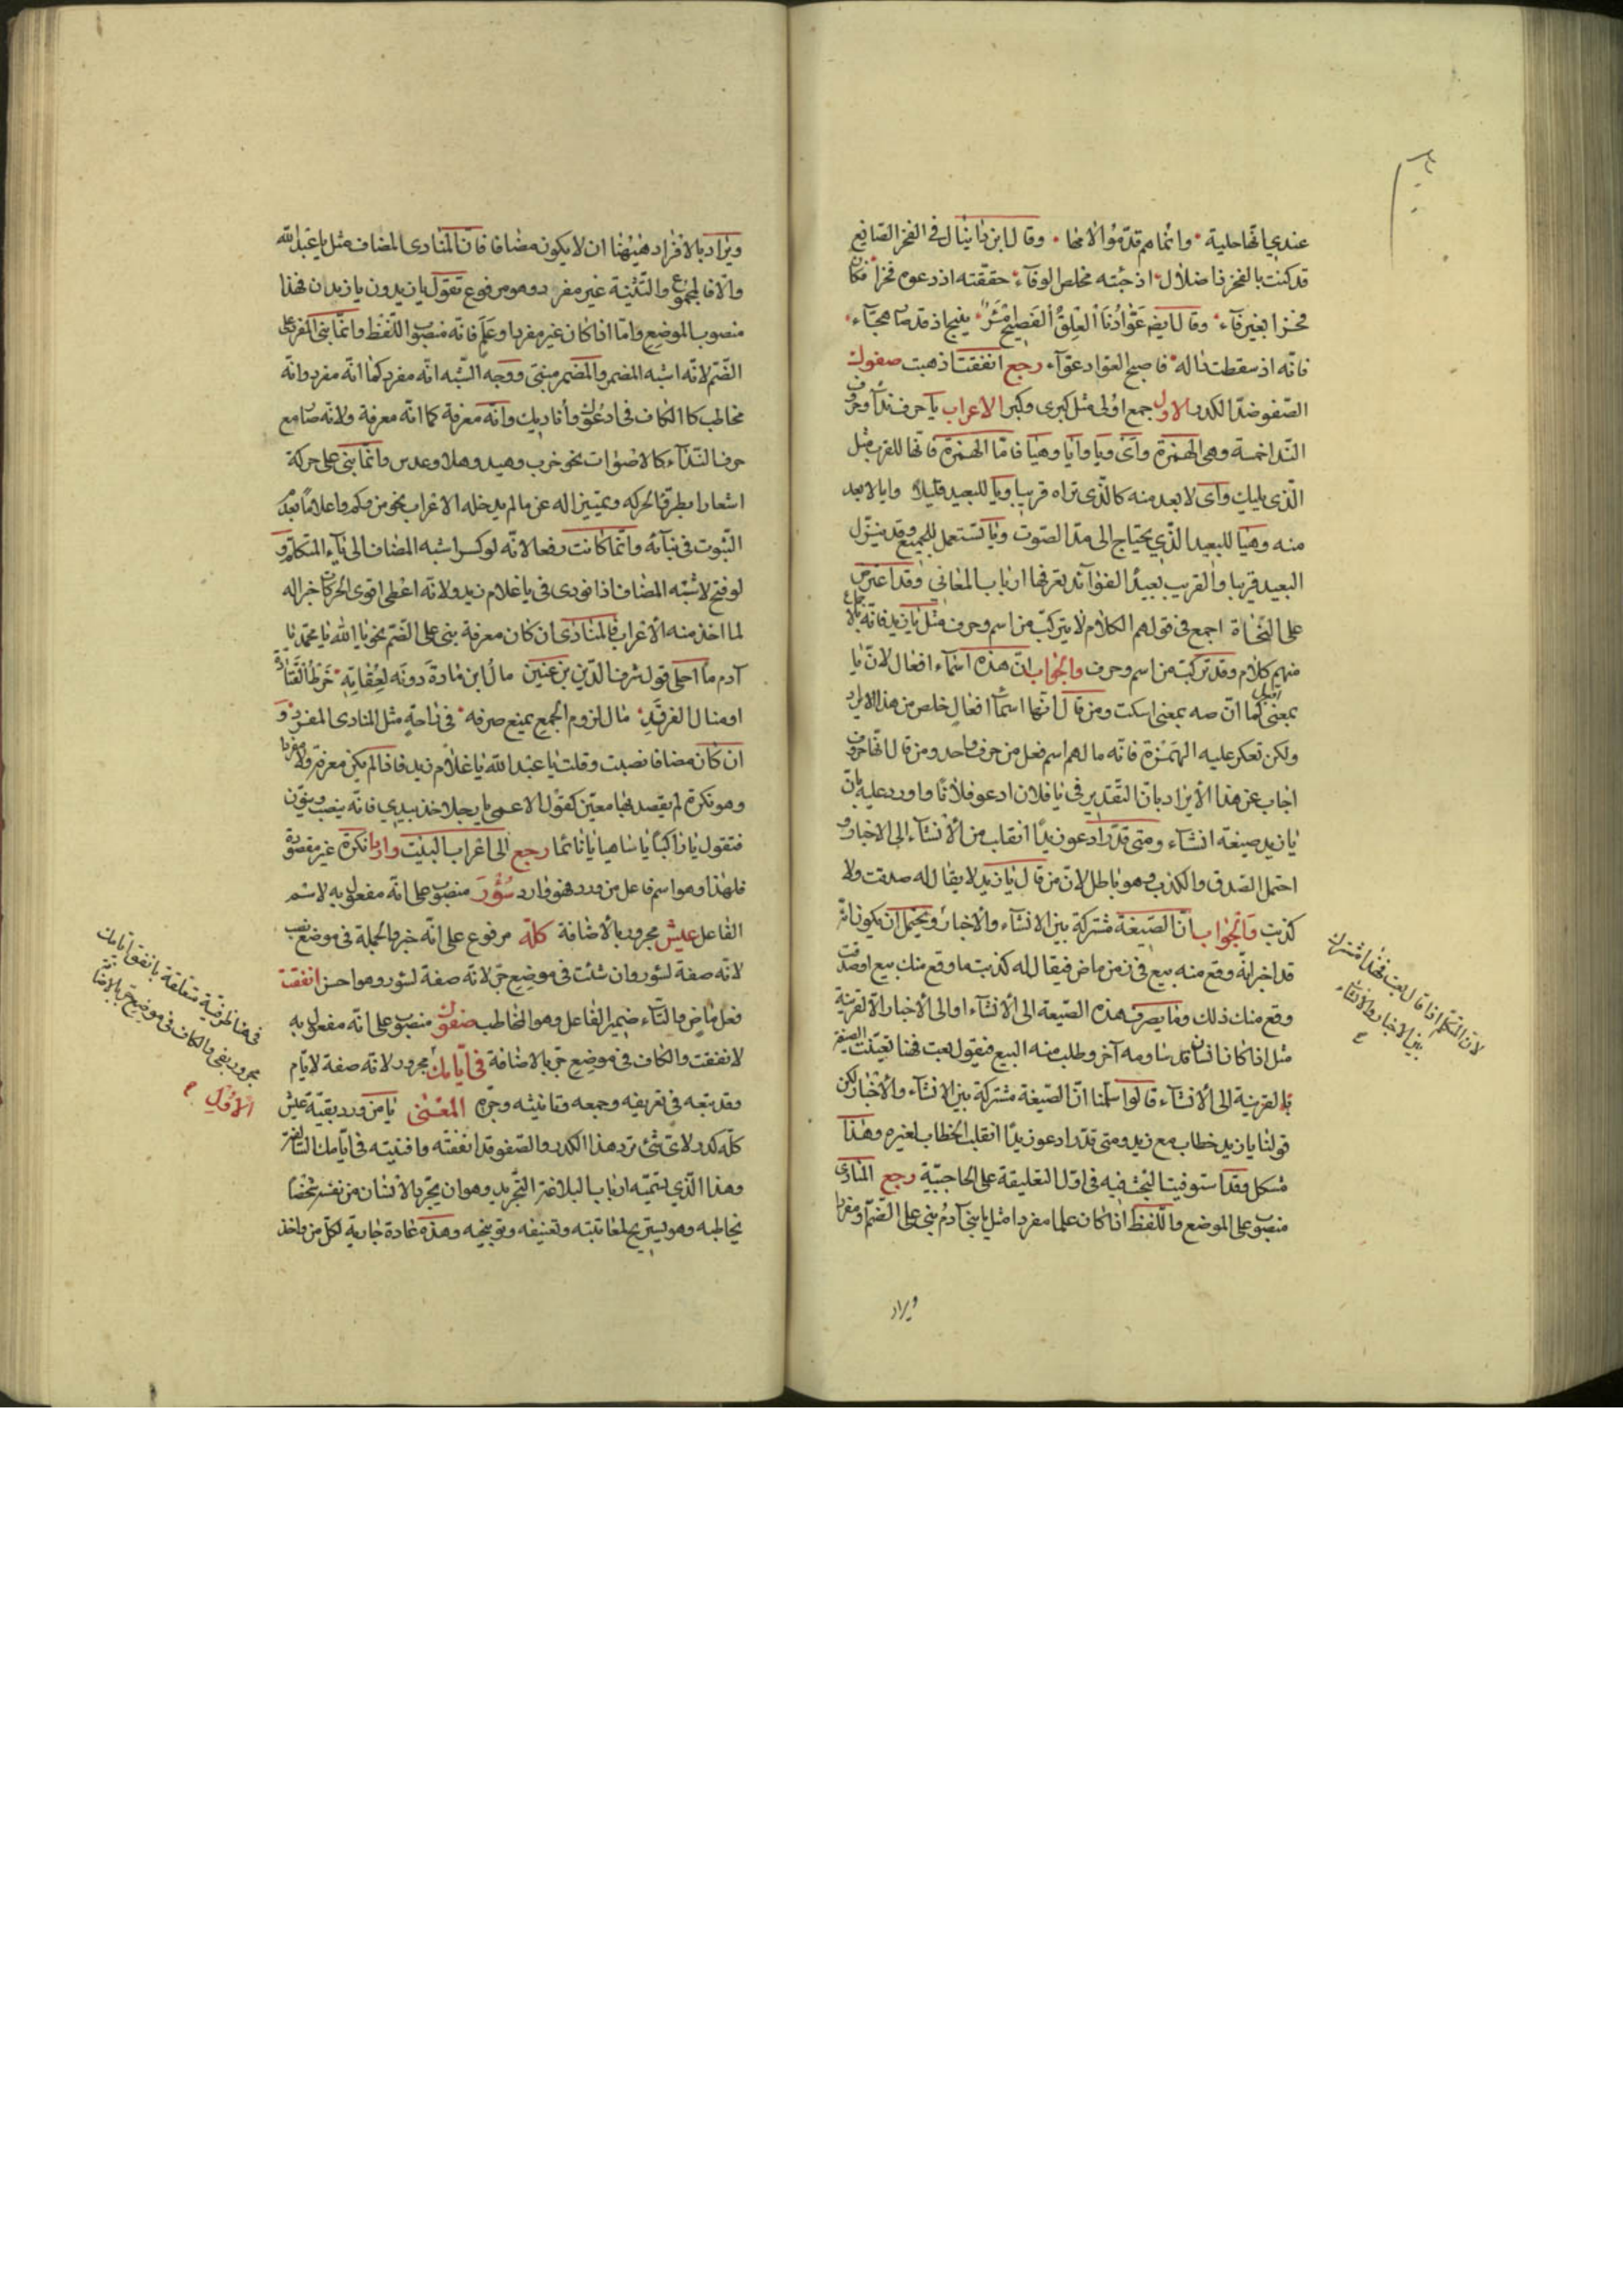 عندي انها حلية وانما هم قدموا الامحا وقال ابن دانيال في الفخر الصايغ
قد كنت بالفخر ذا ضلال اذ جئته مخلص الوفآء حققته اذ دعوه فخرا فكان
فخرا بغير فآء وقال ايضا
فانه اذ سقطت داله فاصبح العواد عوآء رجع انفقت اذهبت صفوك
الصفو ضد الكدر الاول جمع اولى مثل كبرى وكبر الاعراب يا حرف ندآ وحروف
الندا خمسة وهي الهمزة وأى ويا وأيا وهيا فاما الهمزة فانها للقريب مثل
الذي يليك وأى لابعد منه كالذي تراه قريبا ويا للبعيد قليلا وايا لابعد
منه وهيا للبعيد الذي يحتاج الى مد الصوت ويا تستعمل للجميع وقد ينزل
البعيد قريبا والقريب بعيدا لفوآئد يعرفها ارباب المعاني وقد اعترض
على النحاة اجمع في قولهم الكلام لا يتركب من اسم وحرف مثل يا زيد فانه بالاجماع
منهم كلام وقد تركب من اسم وحرف والجواب ان هذه اسماء افعال لان يا
بمعنى اقبل كما ان صه بمعنى اسكت ومن قال انها اسمآ افعال خلص من هذا الايراد
ولكن تعكر عليه الهمزة فانه ما لهم اسم فعل من حرف واحد ومن قال انها حروف
اجاب عن هذا الايراد بان التقدير في يا فلان ادعو فلانا واورد عليه بان
يا زيد صيغة انشاء ومتى قدر ادعو زيدا انقلب من الانشآء الى الاخبار و
احتمل الصدق والكذب وهو باطل لان من قال يا زيد لا يقال له صدقت ولا
كذبت والجواب ان الصيغة مشتركة بين الانشآء والاخبار ويحتمل ان يكون انه
قد اخبر انه وقع منه بيع في زمن ماض فيقال له كذبت ما وقع منك بيع او صدقت
وقع منك ذلك وما يصرف هذه الصيغة الى الانشآء او الى الاخبار الا القرينة
مثل اذا كان انسان قد ساومه آخر وطلب منه البيع فيقول بعت فهنا تعينت الصيغة
بالقرينة الى الانشآء قالوا سلمنا ان الصيغة مشتركة بين الانشآء والاخبار لكن
قولنا يا زيد خطاب مع زيد ومتى قدر ادعو زيدا انقلب الخطاب لغيره وهذا
مشكل وقد استوفيت البحث فيه في اول التعليقة على الحاجبية رجع المنادى
منصوب على الموضع واللفظ اذا كان علما مفردا مثل يا بني آدم بني على الضم ومفردا
ويراد
لان المتكلم اذا قال بعت فهذا مشترك
بين الاخبار والانشاء
ويراد بالافراد هيهنا ان لا يكون مضافا فان المنادى المضاف مثل يا عبد الله
والا فالمجموع والتثنية غير مفرد وهو مرفوع تقول يا زيدون يا زيدان فهذا
منصوب الموضع واما اذا كان غير مفرد او علم فانه منصوب اللفظ وانما بني المفرد على
الضم لانه اشبه المضمر والمضمر مبني ووجه الشبه انه مفرد كما انه مفرد وانه
مخاطب كالكاف في ادعوك وأناديك وانه معرفة كما انه معرفة ولانه صار مع
حرف الندآء كالاصوات نحو خوب وهيد وهلا وعدس وانما بني على حركة
اشعارا بطرؤ الحركه وتمييزا له عن ما لم يدخله الاعراب نحو من وكم واعلاما بعدم
الثبوت في بنآئه وانما كانت رفعا لانه لو كسر اشبه المضاف الى يآء المتكلم و
لو فتح لاشبه المضاف اذا نودي في يا غلام زيد ولانه اعطى اقوى الحركات جبرا له
لما اخذ منه الاعراب فالمنادى ان كان معرفة بني على الضم نحو يا الله يا محمد يا
آدم ما احلى قول شرف الدين بن عنين مال ابن مازة دونه لعفاته خرط القتادة
او منال الفرقد مال لزوم الجمع يمنع صرفه في راحة مثل المنادى المفرد و
ان كان مضافا نصبت وقلت يا عبد الله يا غلام زيد فاذا لم يكن معرفة ولا مفردا
وهو نكرة لم يقصد بها معين كقول الاعمى يا رجلا خذ بيدي فانه ينصب وينون
فتقول يا راكبا يا ساهيا يا نائما رجع الى اعراب البيت واردا نكرة غير مقصودة
فلهذا وهو اسم فاعل من ورد فهو وارد سؤر منصوب على انه مفعول به لاسم
الفاعل عيش مجرور بالاضافة كله مرفوع على انه خبر والجملة في موضع نصب
لانه صفة لسؤر وان شئت في موضع جر لانه صفة لسؤر وهو احسن انفقت
فعل ماض والتآء ضمير الفاعل وهو المخاطب صفوك منصوب على انه مفعول به
لانفقت والكاف في موضع جر بالاضافة في ايامك مجرور لانه صفة لايام
وقد تبعه في تعريفه وجمعه وتانيثه وجره المعنى يا من ورد بقية عيش
كله كدر لاى شئ ترد هذا الكدر والصفو قد انفقته وافنيته في ايامك السالفة
وهذا الذي يسميه ارباب البلاغة التجريد وهو ان يجرد الانسان من نفسه شخصا
يخاطبه وهو يستريح لمعاتبته وتعنيفه وتوبيخه وهذه عادة جارية لكل من واخذ
في هنا ظرفية متعلقة بانفق ايامك
مجرور بفي والكاف في موضع جر بالاضافة
الاول